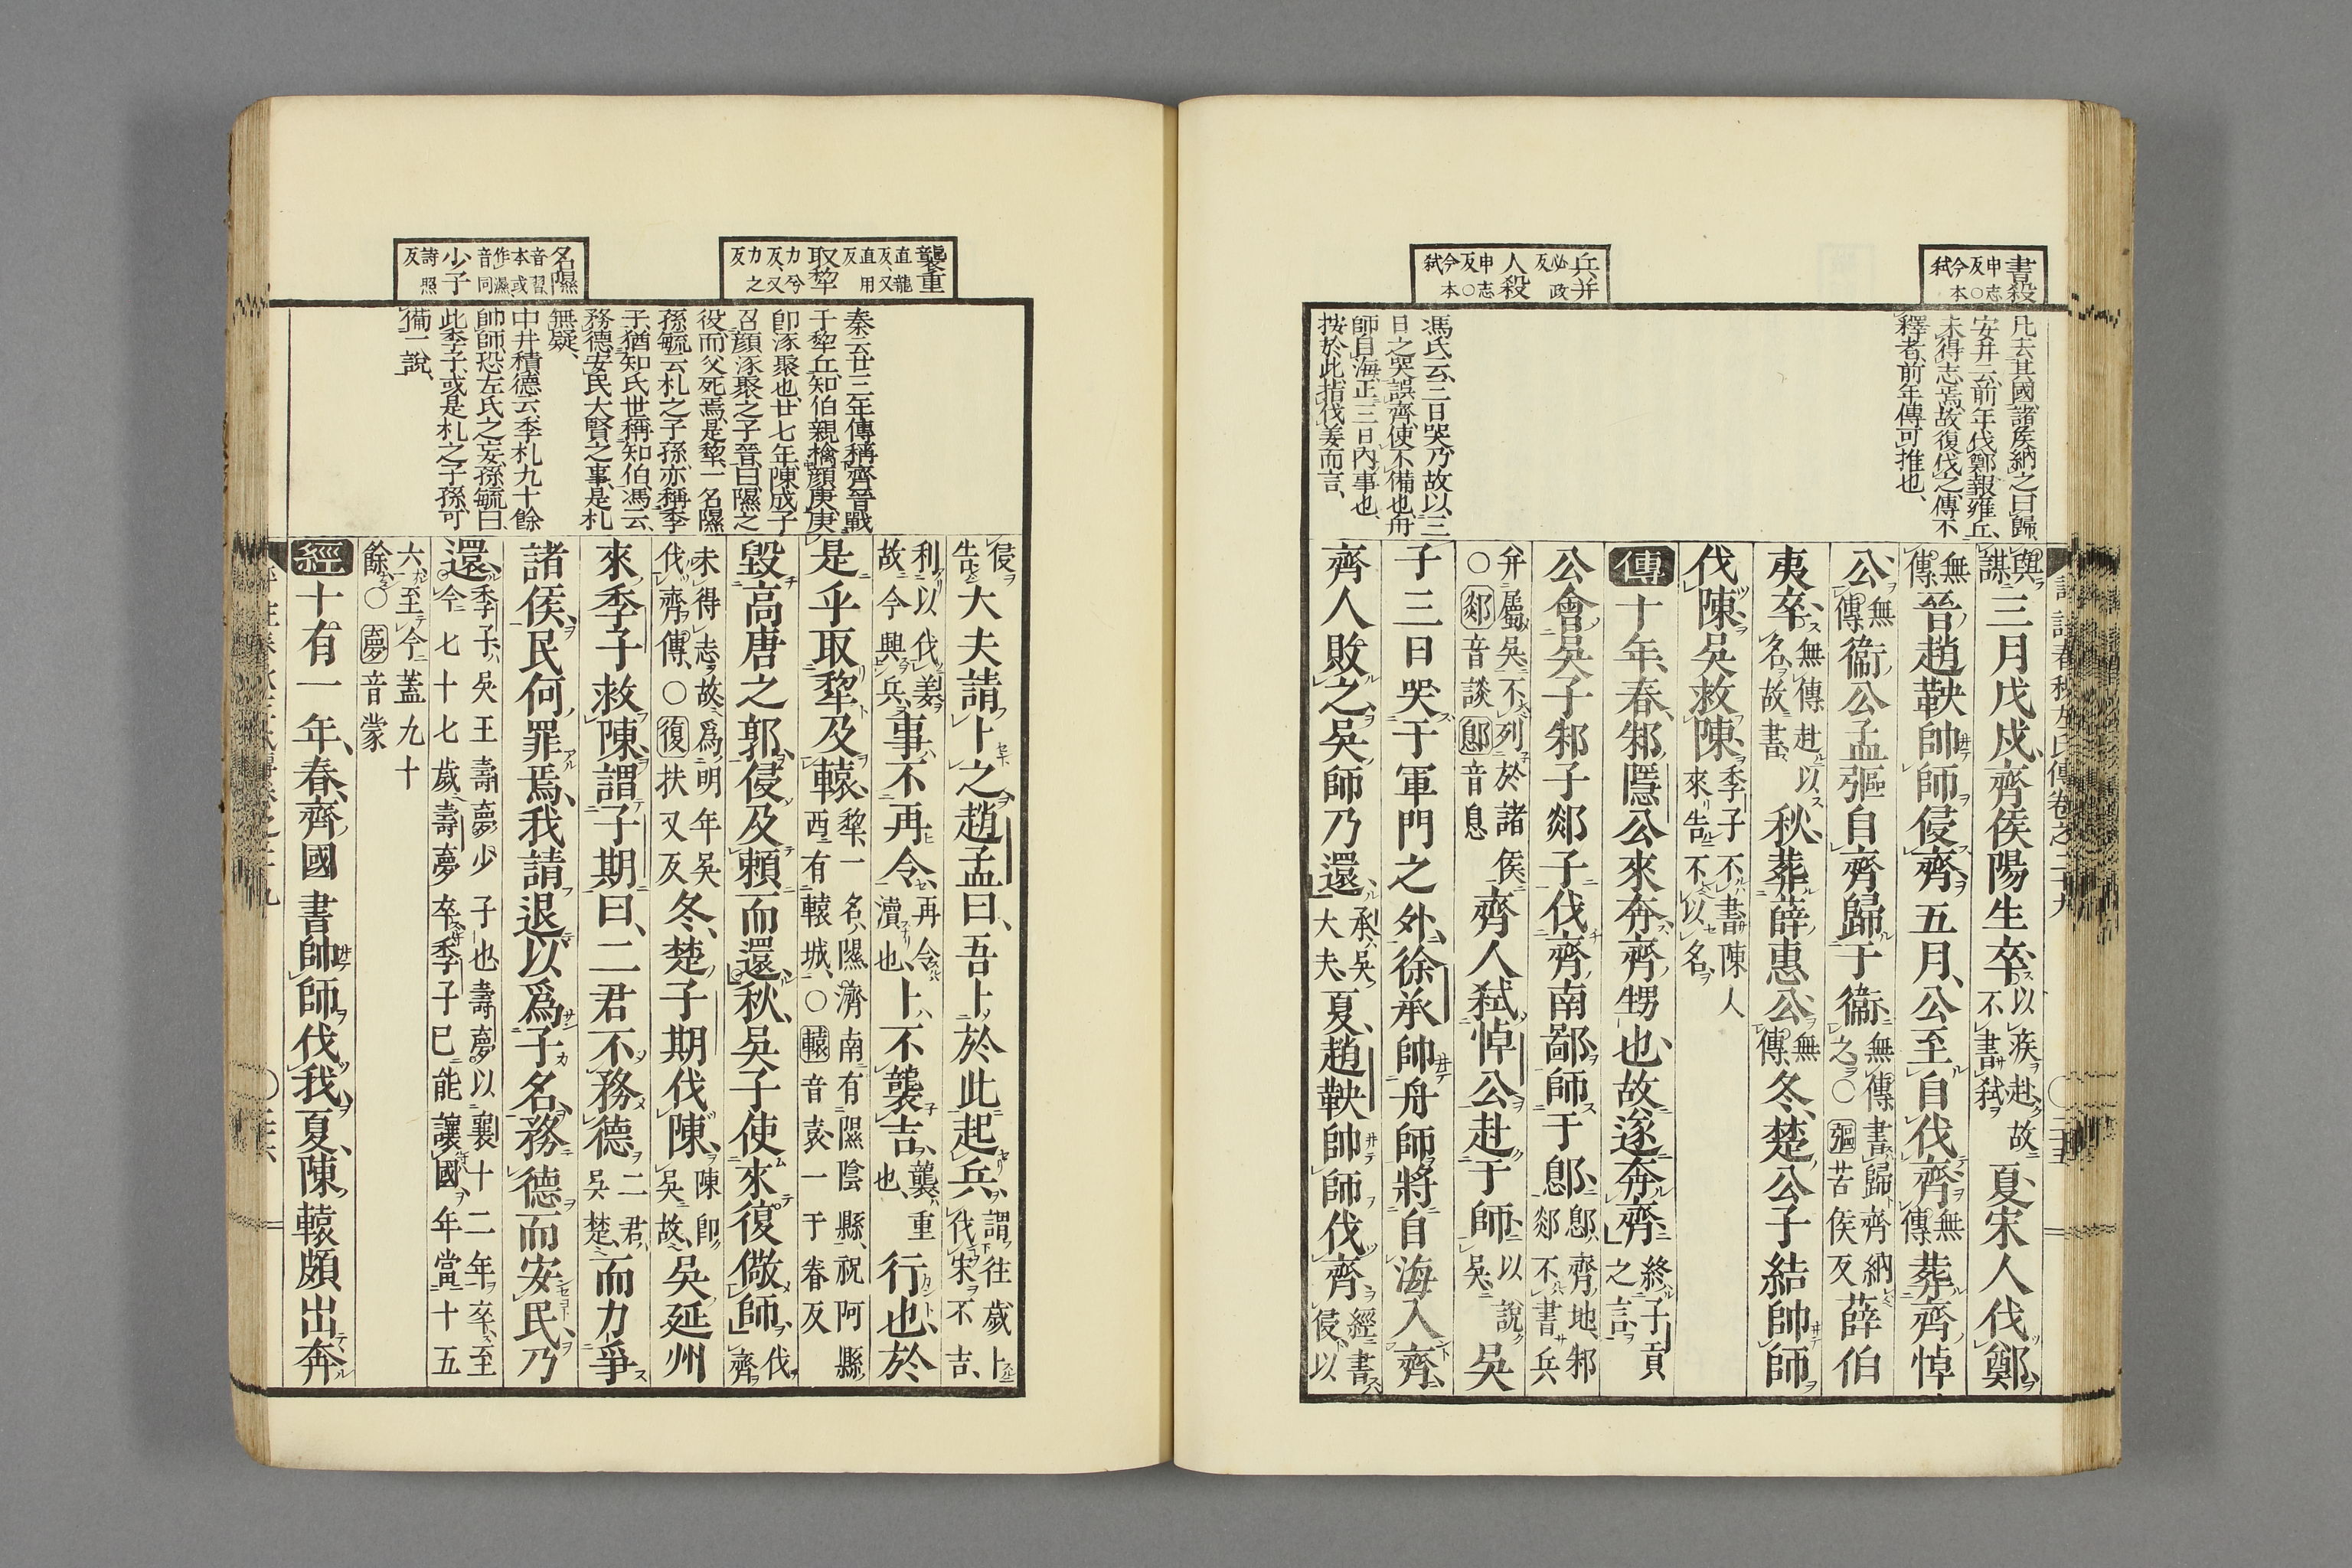 書殺
申志反○
今本弑
凡去其國諸侯納之曰歸
安井云前年伐鄭報雍丘
未得志焉故復伐之傳不
釋者前年傳可推也
兵并
必政反
人殺
申志反○
今本弑
馮氏云三日哭乃故以三
日之哭誤齊使不備也舟
師自海正三日內事也
按於此指伐姜而言
與謀三月戊戌齊侯陽生卒以疾赴故不書弑夏宋人伐鄭
無傳晉趙鞅帥師侵齊五月公至自伐齊無傳葬齊悼
公無傳衞公孟彄自齊歸于衞無傳書歸齊納之○彄苦侯反薛伯
夷卒無傳赴以名故書秋葬薛惠公無傳冬楚公子結帥師
伐陳吳救陳季子不書陳人來告不以名
傳十年春邾隱公來奔齊甥也故遂奔齊終子貢之言
公會吳子邾子郯子伐齊南鄙師于鄎鄎齊地邾郯不書兵
并屬吳不列於諸侯○郯音談鄎音息齊人弑悼公赴于師以說吳吳
子三日哭于軍門之外徐承帥舟師將自海入齊
齊人敗之吳師乃還承吳大夫夏趙鞅帥師伐齊經書侵以
襲重
直龍反又直用反
取犂
力兮反又力之反
名隰
音習本或作濕音同
少子
詩照反
秦云廿三年傳稱齊晉戰
于犂丘知伯親檎顏庚庚
卽涿聚也廿七年陳成子
召顏涿聚之子晉曰隰之
役而父死焉是犂一名隰
孫毓云札之子孫亦稱季
子猶知氏世稱知伯馮云
務德安民大賢之事是札
無疑
中井積德云季札九十餘
帥師恐左氏之妄孫毓曰
此季子或是札之子孫可
備一說
侵告大夫請卜之趙孟曰吾卜於此起兵謂往歲卜伐宋不吉
利以伐姜故今興兵事不再令再令瀆也卜不襲吉襲重也行也於
是乎取犂及轅犂一名隰濟南有隰陰縣祝阿縣西有轅城○轅音袁一于眷反
毀高唐之郭侵及賴而還秋吳子使來復儆師伐齊
未得志故爲明年吳伐齊傳○復扶又反冬楚子期伐陳陳卽吳故吳延州
來季子救陳謂子期曰二君不務德二君吳楚而力爭
諸侯民何罪焉我請退以爲子名務德而安民乃
還季子吳王壽夢少子也壽夢以襄十二年卒至今七十七歲壽夢卒季子已能讓國年當十五
六至今蓋九十餘○夢音蒙
經十有一年春齊國書帥師伐我夏陳轅頗出奔